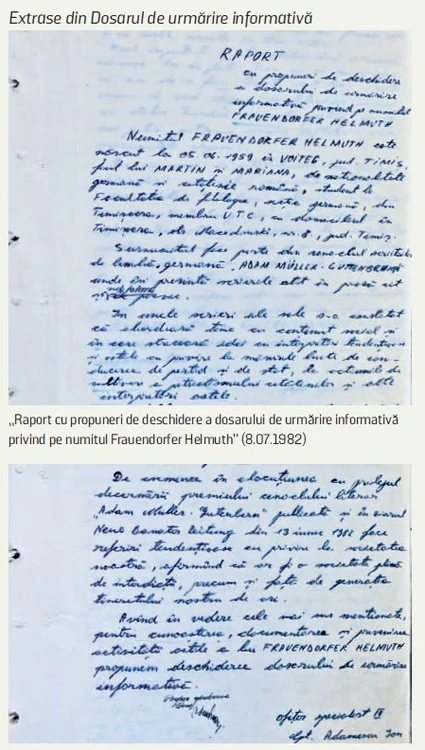 Extrase din Dosarul de urmărire informativă
RAPORT
cu propuneri de deschidere
a dosarului de urmărire
informativă privind pe numitul
FRAUENDORFER HELMUTH
Numitul FRAUENDORFER HELMUTH este
născut la 05.06.1959 în VOITEG, jud. TIMIȘ,
fiul lui MARTIN și MARIANA, de naționalitate
germană și cetățenie română, student la
Facultatea de filologie, secția germană, din
Timișoara, membru U.T.C., cu domiciliul în
Timișoara, str. Macedonski, nr. 8, jud. Timiș.
Susnumitul face parte din cenaclul scriitorilor
de limbă germană, ADAM MÜLLER-GUTENBRUNN
unde își prezintă scrierile atît în proză cît
și
În unele scrieri ale sale s-a constatat
că abordează teme cu conținut social și
în care strecoară idei cu interpretări tendențioase
și ostile cu privire la măsurile luate de con-
ducerea de partid și de stat, la acțiunile de
cultivare a patriotismului cetățenilor și alte
interpretări ostile.
„Raport cu propuneri de deschidere a dosarului de urmărire informativă
privind pe numitul Frauendorfer Helmuth” (8.07.1982)
De asemenea în elocuțiunea cu prilejul
decernării premiului cenaclului literar
"Adam Muller. Gutenbrunn" publicată și în ziarul
Neue Banater Zeitung din 13 iunie 1982 face
referiri tendențioase cu privire la societatea
noastră, afirmând că ar fi o societate plină
de interdicții, precum și față de generația
tineretului nostru de azi.
Avînd în vedere cele mai sus menționate,
pentru cunoașterea, documentarea și prevenirea
activității ostile a lui FRAUENDORFER HELMUTH
propunem deschiderea dosarului de urmărire
informativă.
ofițer specialist II
cpt. Adamescu Ion